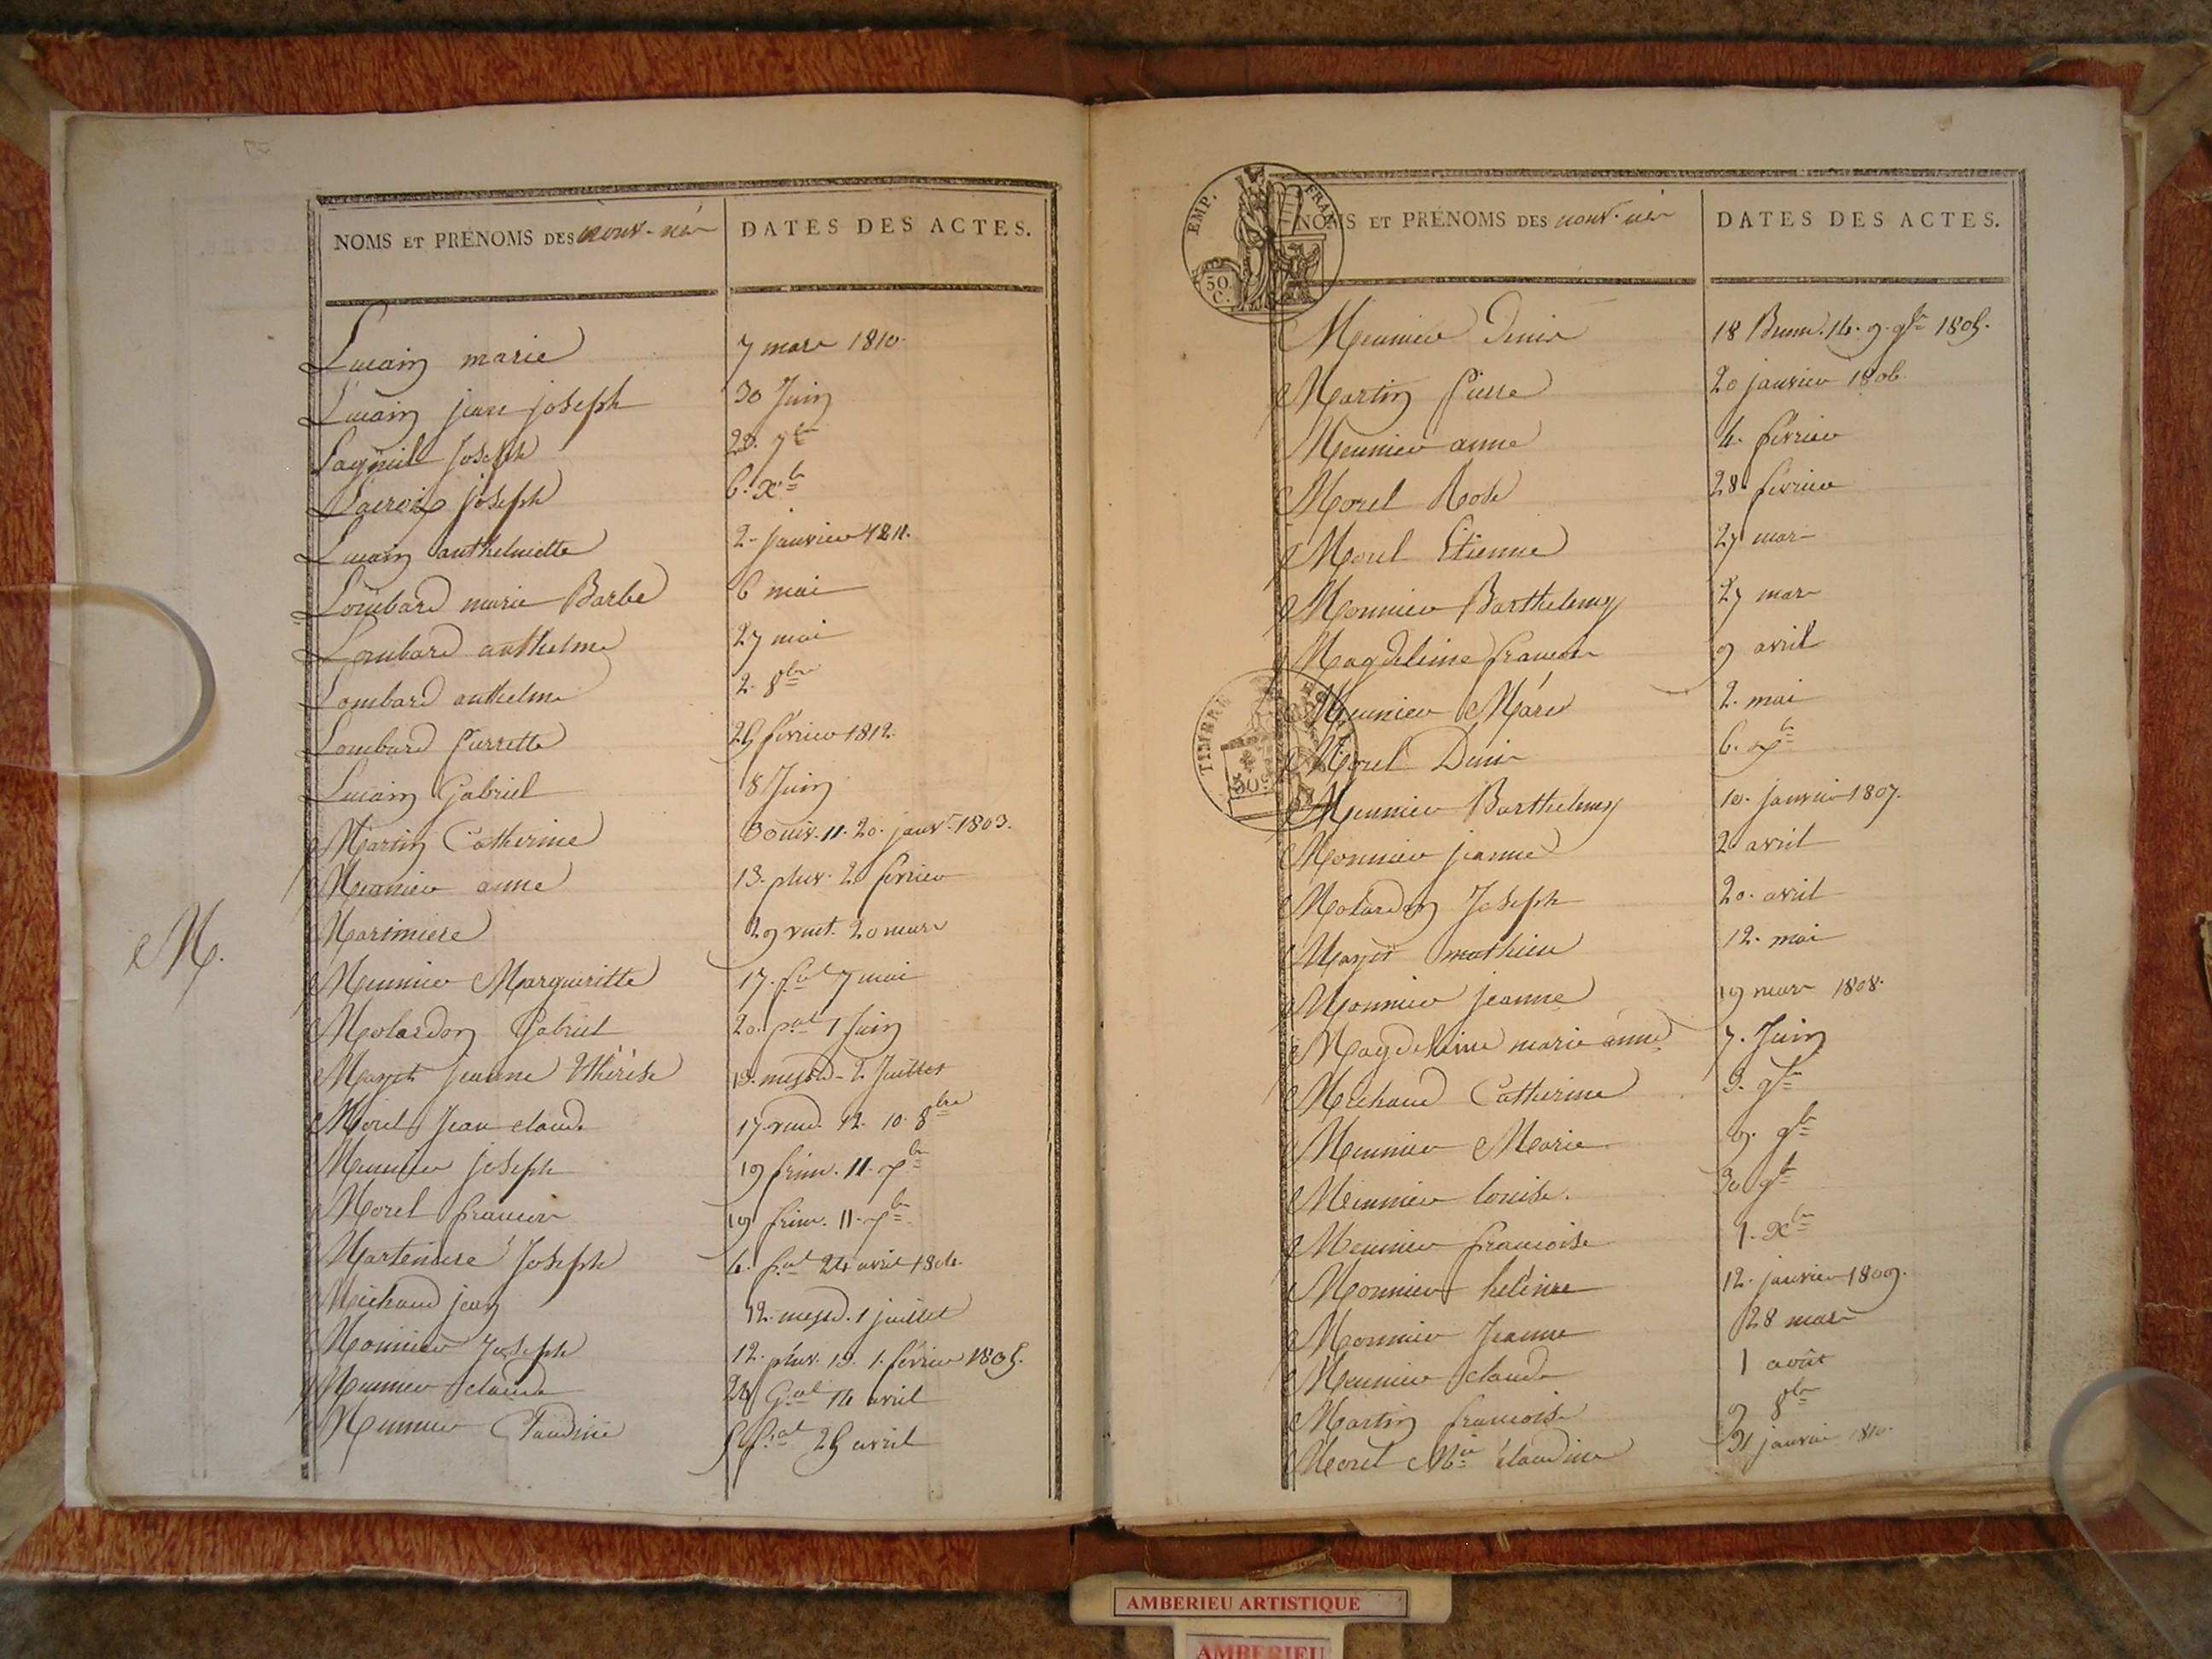 NOMS ET PRÉNOMS DES nouv-nés DATES DES ACTES.
Lucain marie 7 mars 1810.
Lucain jean joseph 30 Juin
Lagneil Joseph 28. 7bre
Lacroix joseph 6. xbre
Lucain anthelmette 2 janvier 1811.
Lombard marie Barbe 6 mai
Lombard anthelme 27 mai
Lombard anthelme 2. 8bre
Lombard Pierrette 25 février 1812.
Lucain Gabriel 8 Juin
M.
Martin Catherine 30 niv. 11. 20. janvr 1803.
Meunier anne 13. pluv. 2 février
Marimiere 29 vent. 20 mars
Meunier Margueritte 17. fal 7 mai
Molardon Gabriel 20. pal 1 Juin
Mayet jeanne Thérèse 13. messd. 2 Juillet
Morel Jean claude 17 vend. 12. 10. 8bre
Meunier joseph 19 frim. 11. xbre
Morel francois 19 frim. 11. xbre
Marteniere Joseph 4. fal 24 avril 1804.
Michaud jean 12. messd. 1 juillet
Monnier Joseph 12. pluv. 13. 1. février 1805.
Meunier claude 24 Gal 14 avril
Meunier Claudine 5 fal 25 avril
EMP. FRAN
50 C.
NOMS ET PRÉNOMS DES nouv-nés DATES DES ACTES.
Meunier Denis 18 Brum. 14. 9. 9bre 1805.
Martin Pierre 20 janvier 1806.
Meunier anne 4. février
Morel Rose 28 février
Morel Etienne 27 mars
Monnier Barthelemy 27 mars
Magdeleine francois 9 avril
Meunier Marie 2. mai
TIMBRE
50c
Morel Denis 6. xbre
Meunier Barthelemy 10. janvier 1807.
Monnier jeanne 2 avril
Molardon Joseph 20. avril
Mayet mathieu 12. mai
Monnier jeanne 19 mars 1808.
Magdeleine marie anne 7. Juin
Michaud Catherine 3. 9bre
Meunier Marie 9. 9bre
Meunier louise. 30 9bre
Meunier francoise 1. xbre
Monnier helénne 12. janvier 1809.
Monnier Jeanne 28 mars
Meunier claude 1 août
Martin francoise 9 8bre
Morel Mie claudine 31 janvier 1810.
AMBERIEU ARTISTIQUE
AMBERIEU